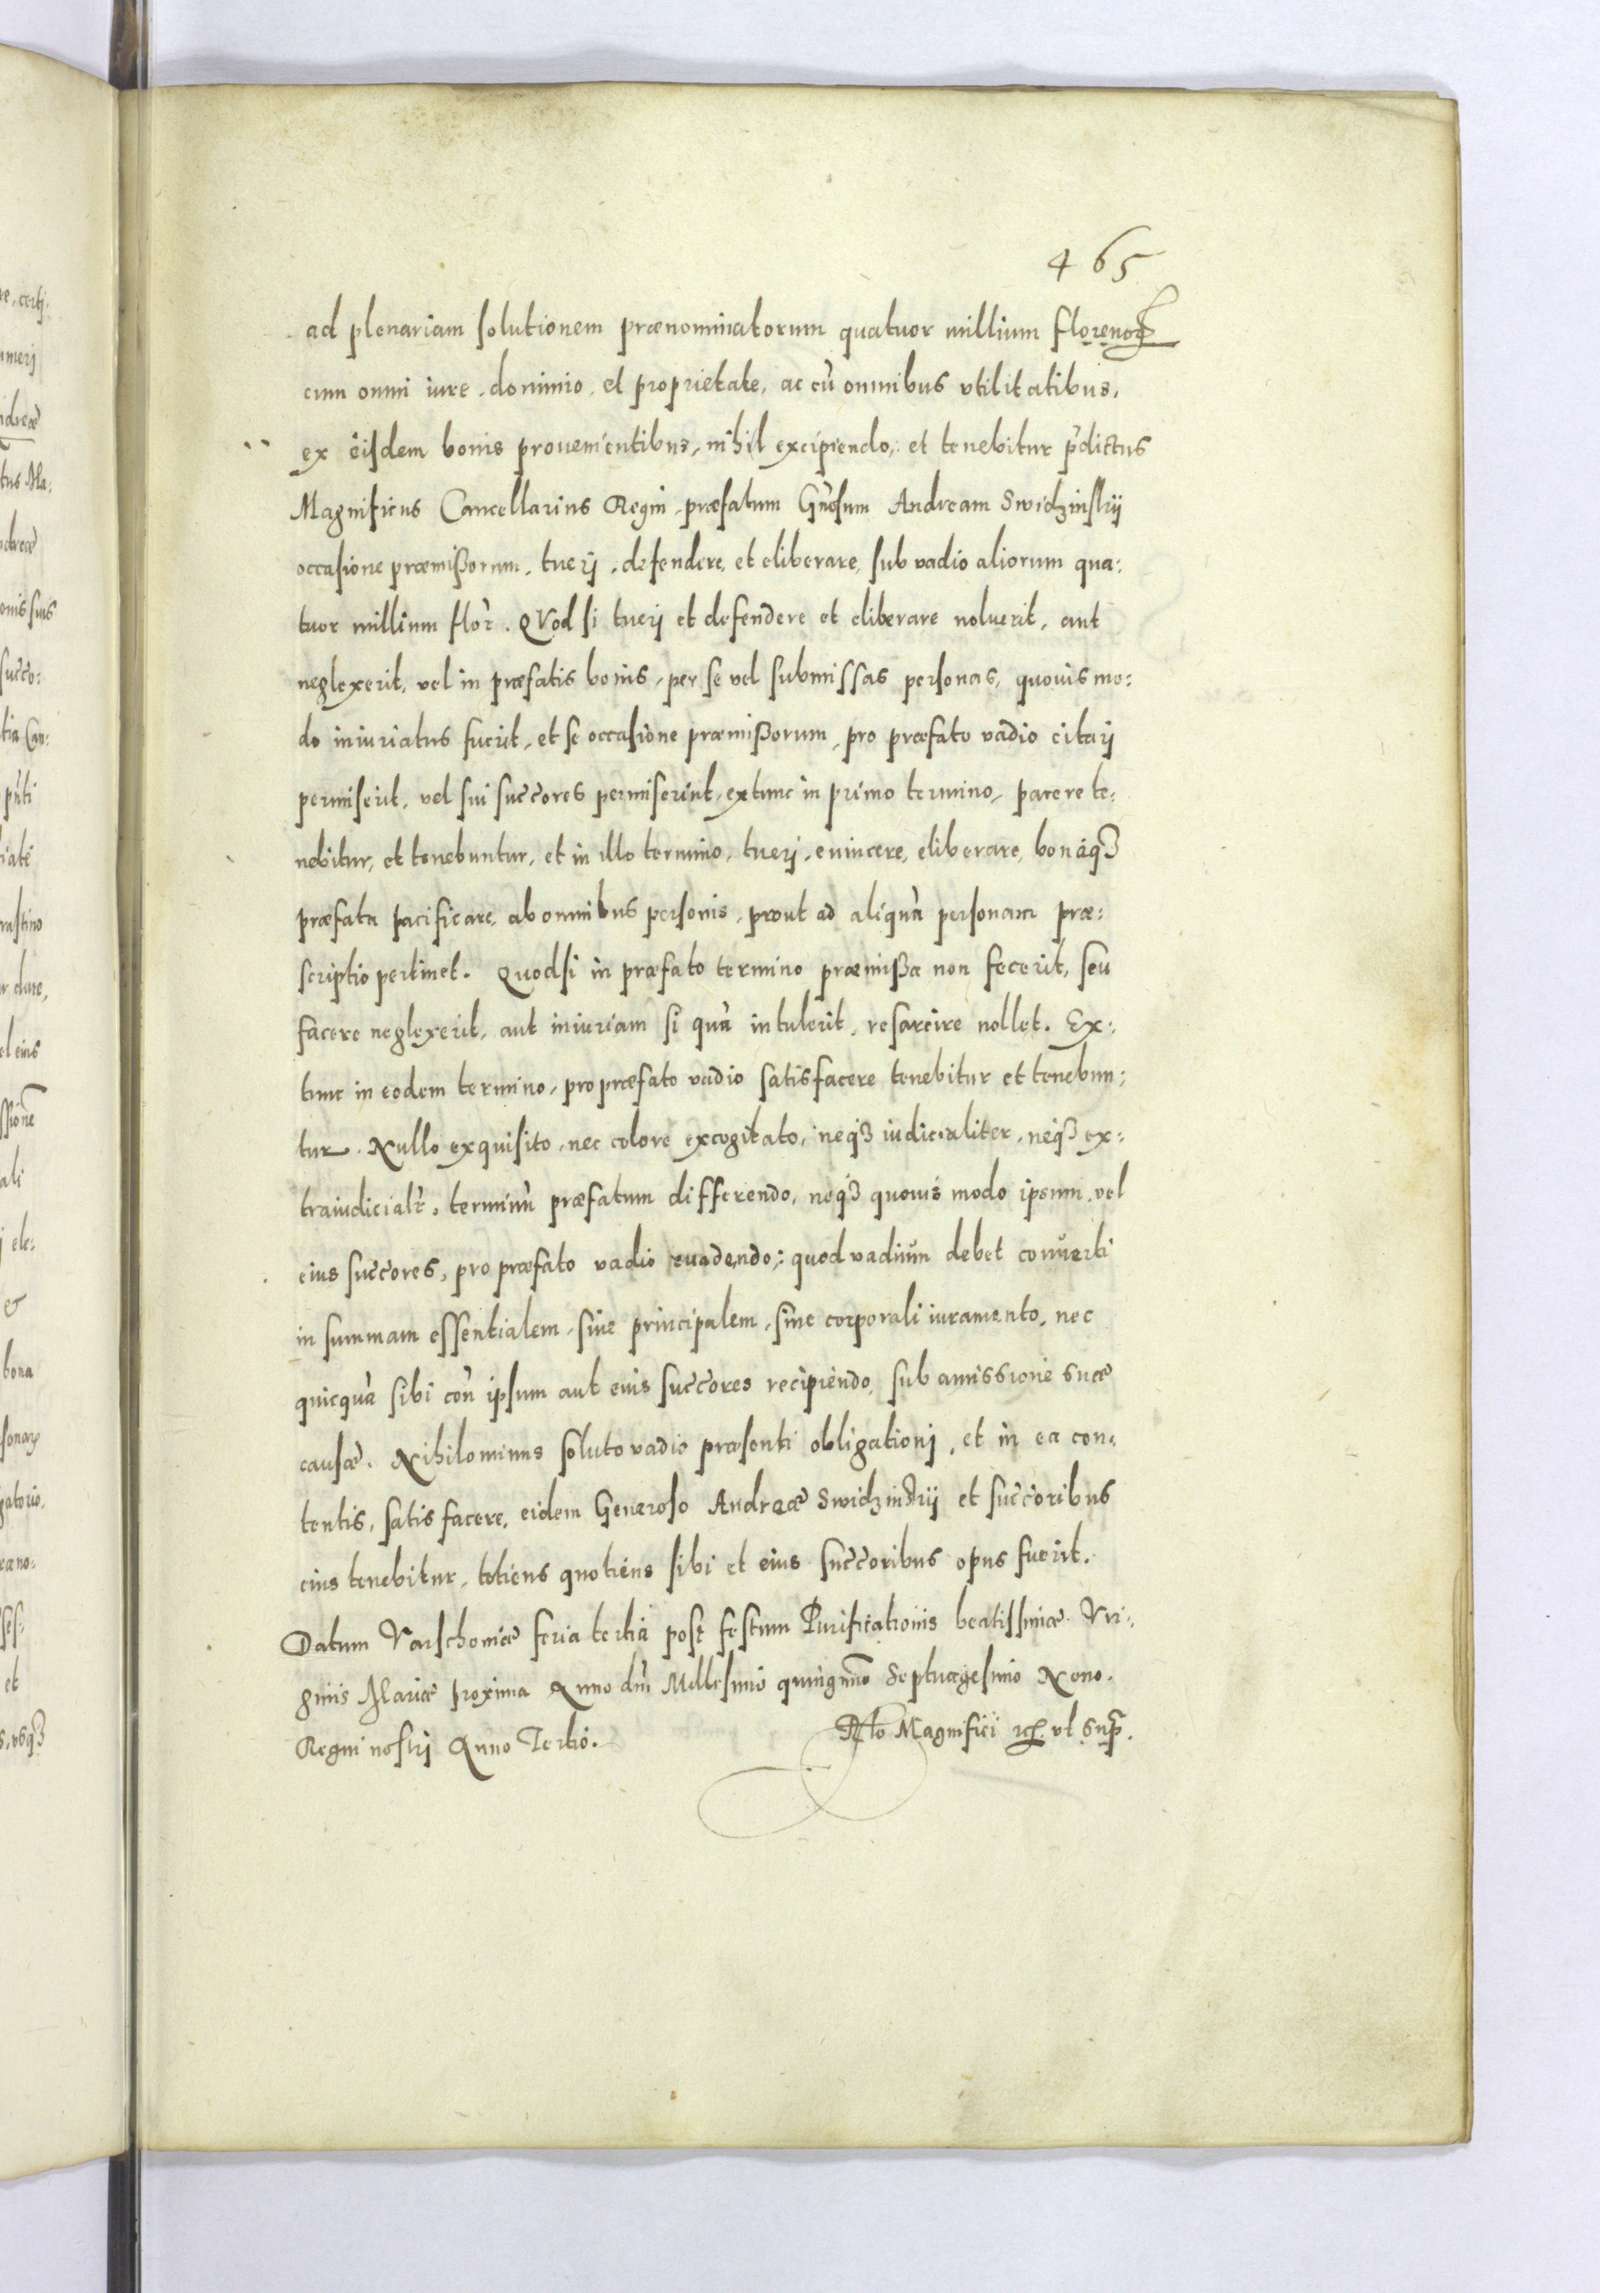 465
ad plenariam solutionem prænominatorum quatuor millium florenoꝝ
cum omni iure, dominio, et proprietate, ac cũ omnibus vtilitatibus,
ex eisdem bonis prouenientibus, nihil excipiendo, et tenebitur p̃dictus
Magnificus Cancellarius Regni, præfatum Gñosum Andream Swidzinskij
occasione præmißorum, tuerj, defendere, et eliberare, sub vadio aliorum qua:
tuor millium flor̃. QVod si tuerj et defendere et eliberare noluerit, aut
neglexerit, vel in præfatis bonis, per se vel submissas personas, quouis mo:
do iniuriatus fuerit, et se occasione præmißorum, pro præfato vadio citarj
permiserit, vel sui succ̃ores permiserint, extunc in primo termino, parere te:
nebitur, et tenebuntur, et in illo termino, tuerj, euincere, eliberare, bonaqꝫ
præfata pacificare, ab omnibus personis, prout ad aliquã personam præ:
scriptio pertinet. Quodsi in præfato termino præmißa non fecerit, seu
facere neglexerit, aut iniuriam si quã intulerit, resarcire nollet. Ex:
tunc in eodem termino, pro præfato vadio satisfacere tenebitur et tenebun:
tur. Nullo exquisito, nec colore excogitato, neqꝫ iudicialiter, neqꝫ ex:
traiudicialr̃, terminũ præfatum differendo, neqꝫ quouis modo ipsum, vel
eius succ̃ores, pro præfato vadio euadendo: quod vadium debet conuerti
in summam essentialem, siue principalem, sine corporali iuramento, nec
quicquã sibi con̄ ipsum aut eius succ̃ores recipiendo, sub amissione suæ
causæ. Nihilominus soluto vadio præsenti obligationj, et in ea con:
tentis, satisfacere, eidem Generoso Andreæ Swidzinskij et succ̃oribus
eius tenebitur, totiens quotiens sibi et eius succ̃oribus opus fuerit.
Datum Varschouiæ feria tertia post festum Purificationis beatissimæ Vir:
ginis Mariæ proxima Anno dnĩ Millesimo quingmõ Septuagesimo Nono.
Regni nostrj Anno Tertio.
Rlo Magnifici &c. vt sup̃.